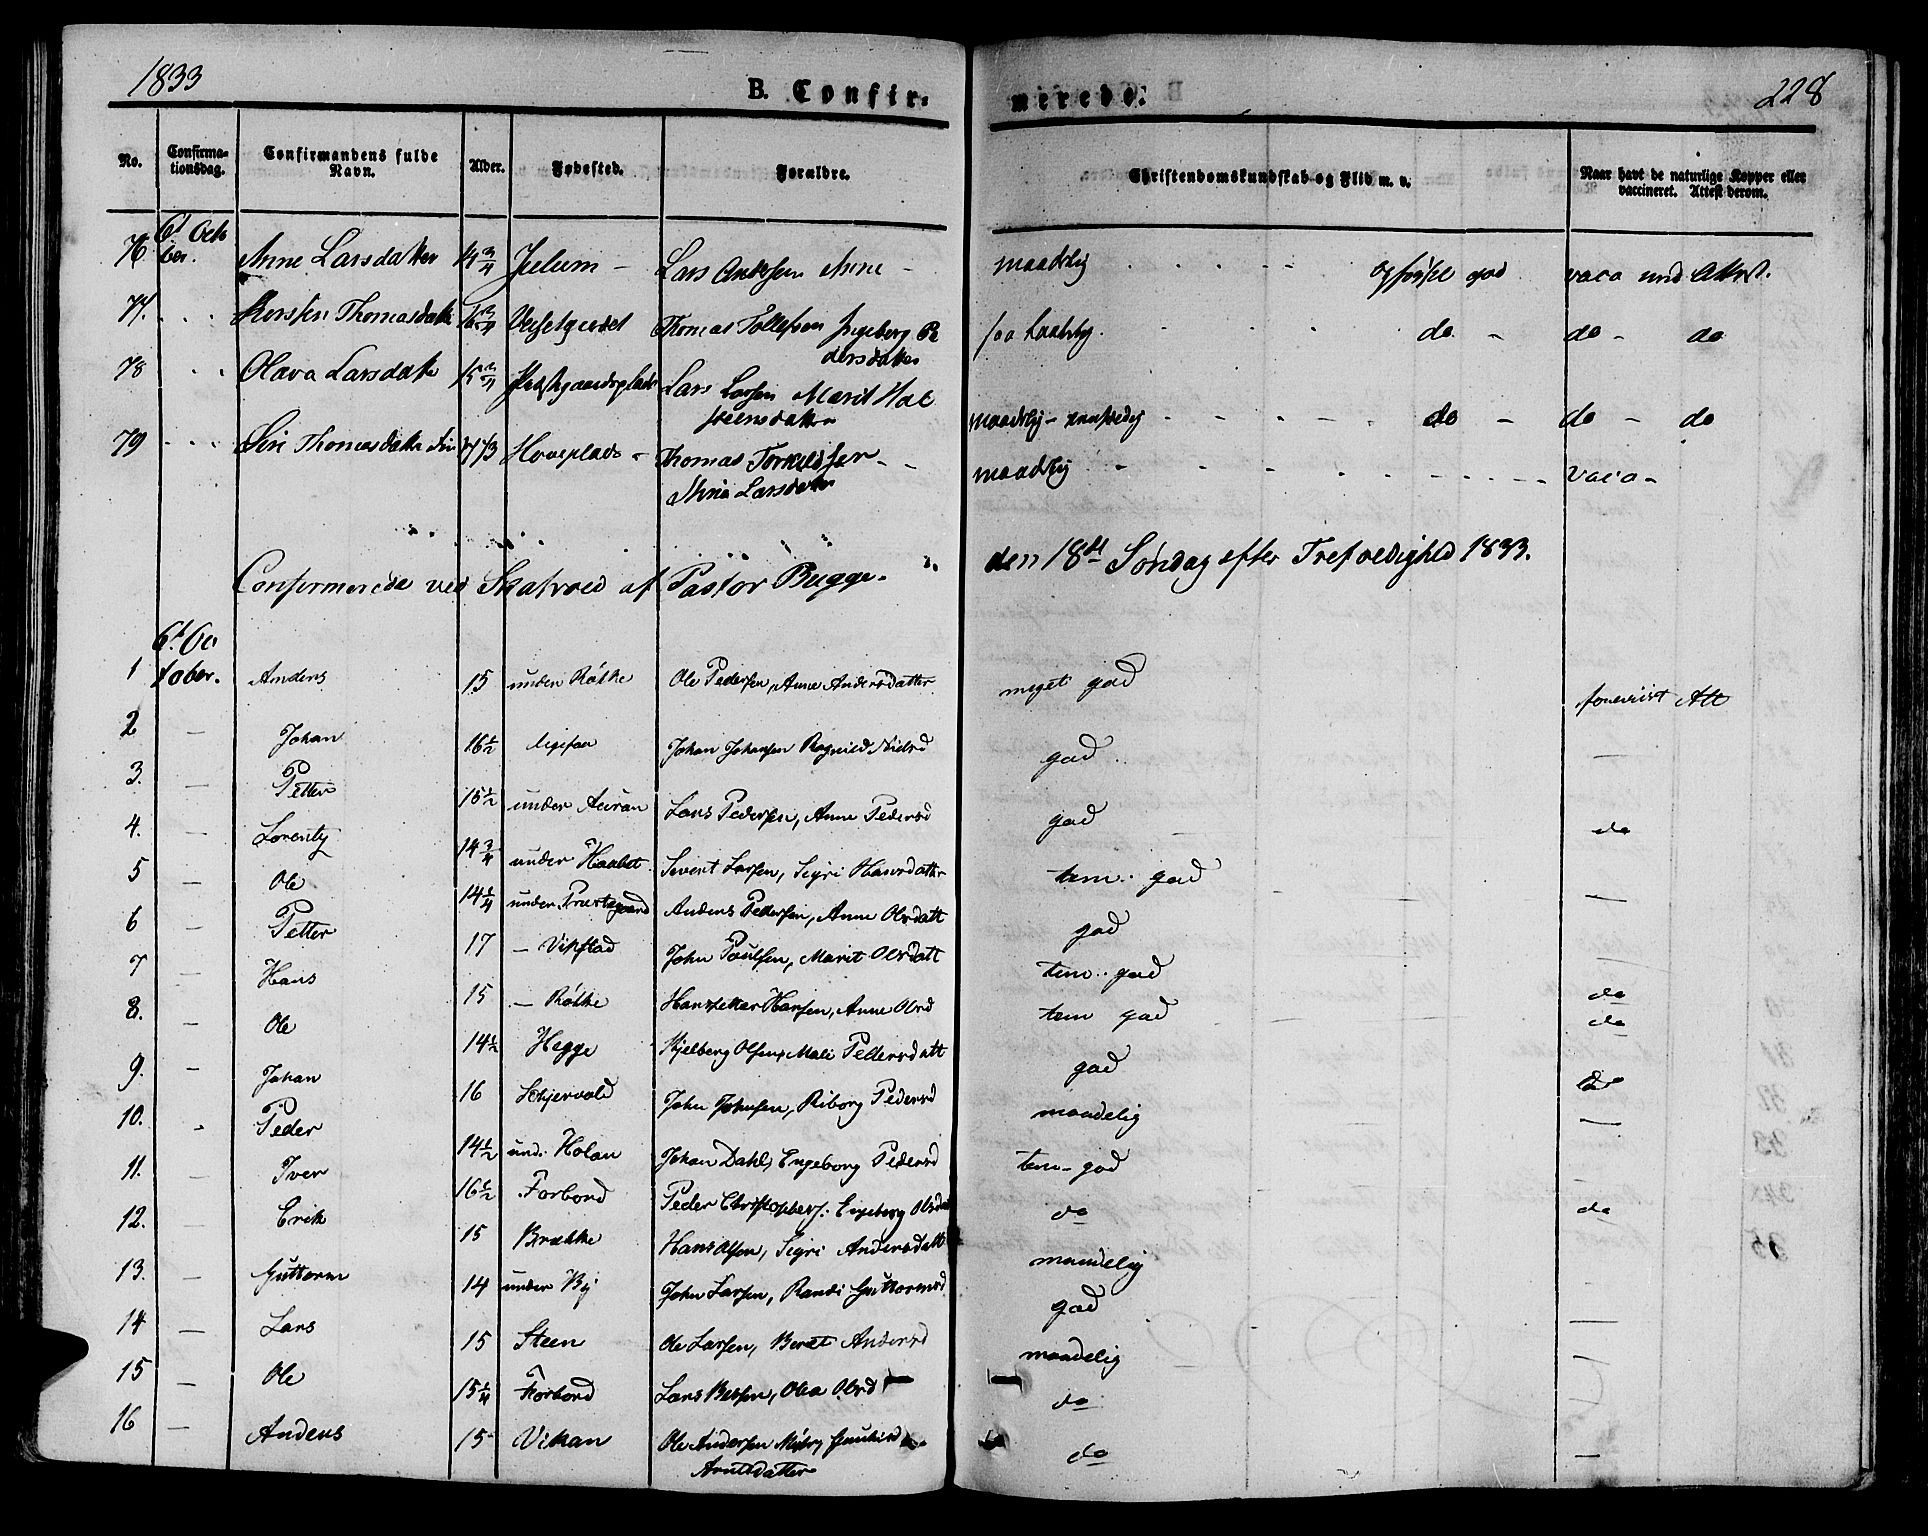 1833
B. Confir-
merede.
228
No.
Confirma-
tionsdag.
Confirmandens fulde
Navn.
Alder.
Fødested.
Forældre.
Christendomskundskab og Flid m. v.
Naar havt de naturlige Kopper eller
vaccineret. Attest derom.
6t Octo
76 ber. Anne Larsdatter 14 3/4 Julum - Lars Andersen Anne - maadelig god vacc und Attest.
77. Kersten Thomasdatt Thomas Tollefsen Ingeborg Pe
dersdatter
do - do - do
78 Olava Larsdatt 15 3/4 Lars Larsen Marit Haa
maadelig - do - do - do
79 Siri Thomasdatter 17 Hoveplads - Thomas Torkildsen - -
Larsdatter
maadelig vacc -
Confirmerede ved Skatvold af Pastor Bugge. den 18de Søndag efter Trefoldighed 1833.
6t Oc
1 tober. Anders 15 under Røkke Ole Pedersen, Anne Andersdatter meget god foreviist Att
2 - Johan 16 1/2 Johan Johansen Ragnild Nielsd god. -
3. - Petter 15 1/2 under Auran Lars Pedersen, Anne Pedersd god do
4. - Lorentz 14 3/4 under Sivert Larsen, Sigri Hansdatter tem. god -
5 - Ole 14 1/4 under Præstegaard Anders Pedersen, Anne Olsdatt god
6 - Petter 17 - Vikstad John Paulsen, Marit Olsdatt tem. god do
7 - Hans 15 - Røkke Hansen, Anne Olsd tem god do
8. - Ole 14 1/2 Hegge Kjelberg Olsen, Mali Pedersdatt god do
9. - Johan 16 John Johnsen, Riborg Pedersd maadelig -
10. - Peder 14 1/2 und. Holan Johan Dahl, Engeborg Pedersd tem- god
11. - Iver 16 1/2 Forbord Peder Christophers. Engeborg Olsdatt do do
12. - Erik 15 Brække Hans Olsen, Sigri Andersdatt maadelig
13. - Guttorm 14 under By John Larsen, Randi Guttormsd god -
14 - Lars 15 Steen Ole Larsen, Beret Andersd maadelig
15 - Ole 15 1/4 Forbord Lars Olsd do
16 - Anders 15 Vikan Ole Andersen
Arntsdatter
do -